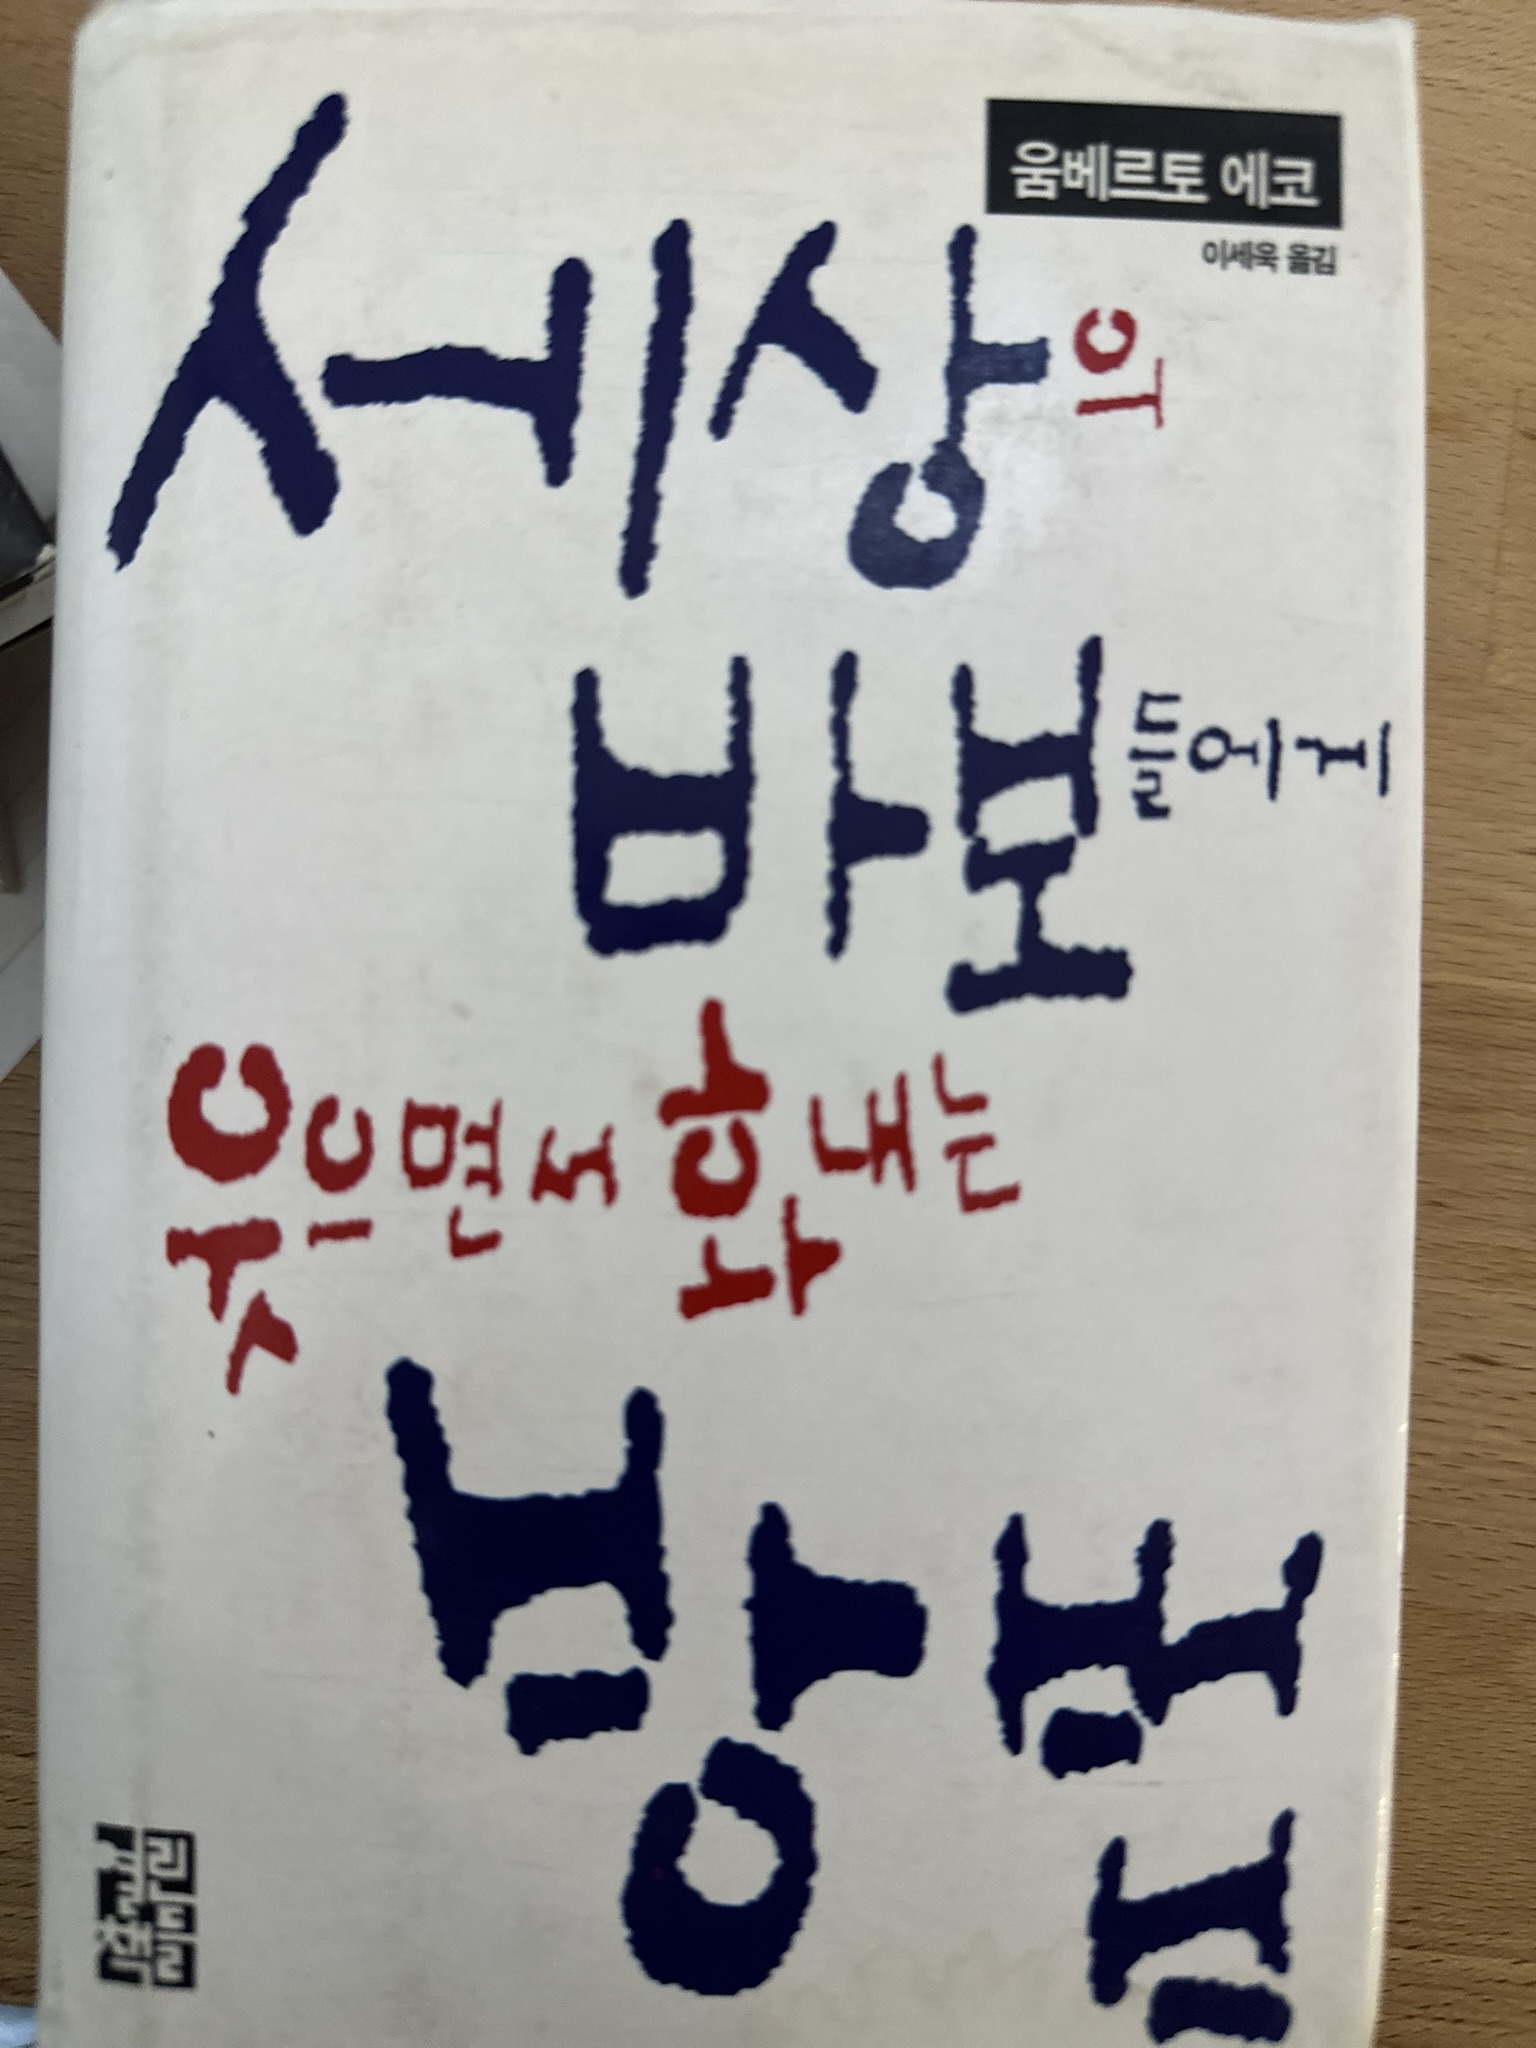 움베르토 에코
이세욱 옮김
세상의
바보들에게
웃으면서 화내는
방법